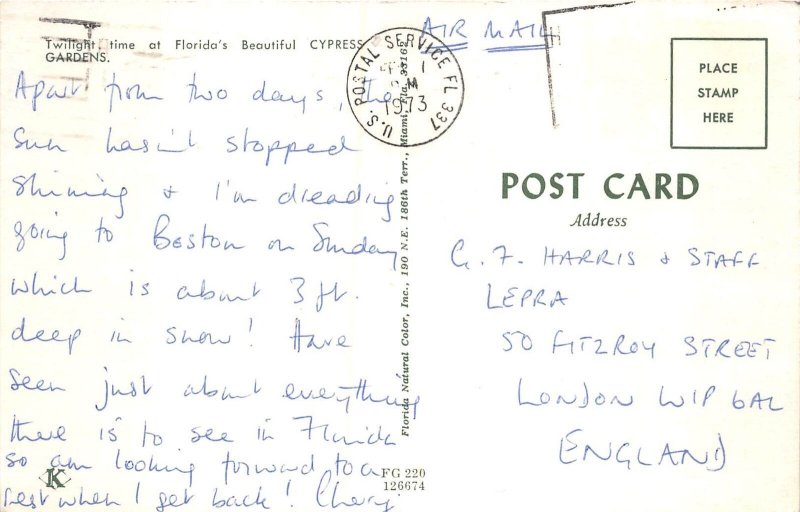 Twilight time at Florida's Beautiful CYPRESS
GARDENS.
Apart from two days, the
sun hasn't stopped
shining & I'm dreading
going to Boston on Sunday
which is about 3 ft.
deep in snow! Have
seen just about everything
there is to see in Florida
so am looking forward to a
rest when I get back! Cheryl
K
FG 220
126674
Florida Natural Color, Inc., 190 N.E. 186th Terr., Miami, Fla. 33162
U.S. POSTAL SERVICE FL 337
1
PM
1973
AIR MAIL
PLACE
STAMP
HERE
POST CARD
Address
G. F. HARRIS & STAFF
LEPRA
50 FITZROY STREET
LONDON W1P 6AL
ENGLAND